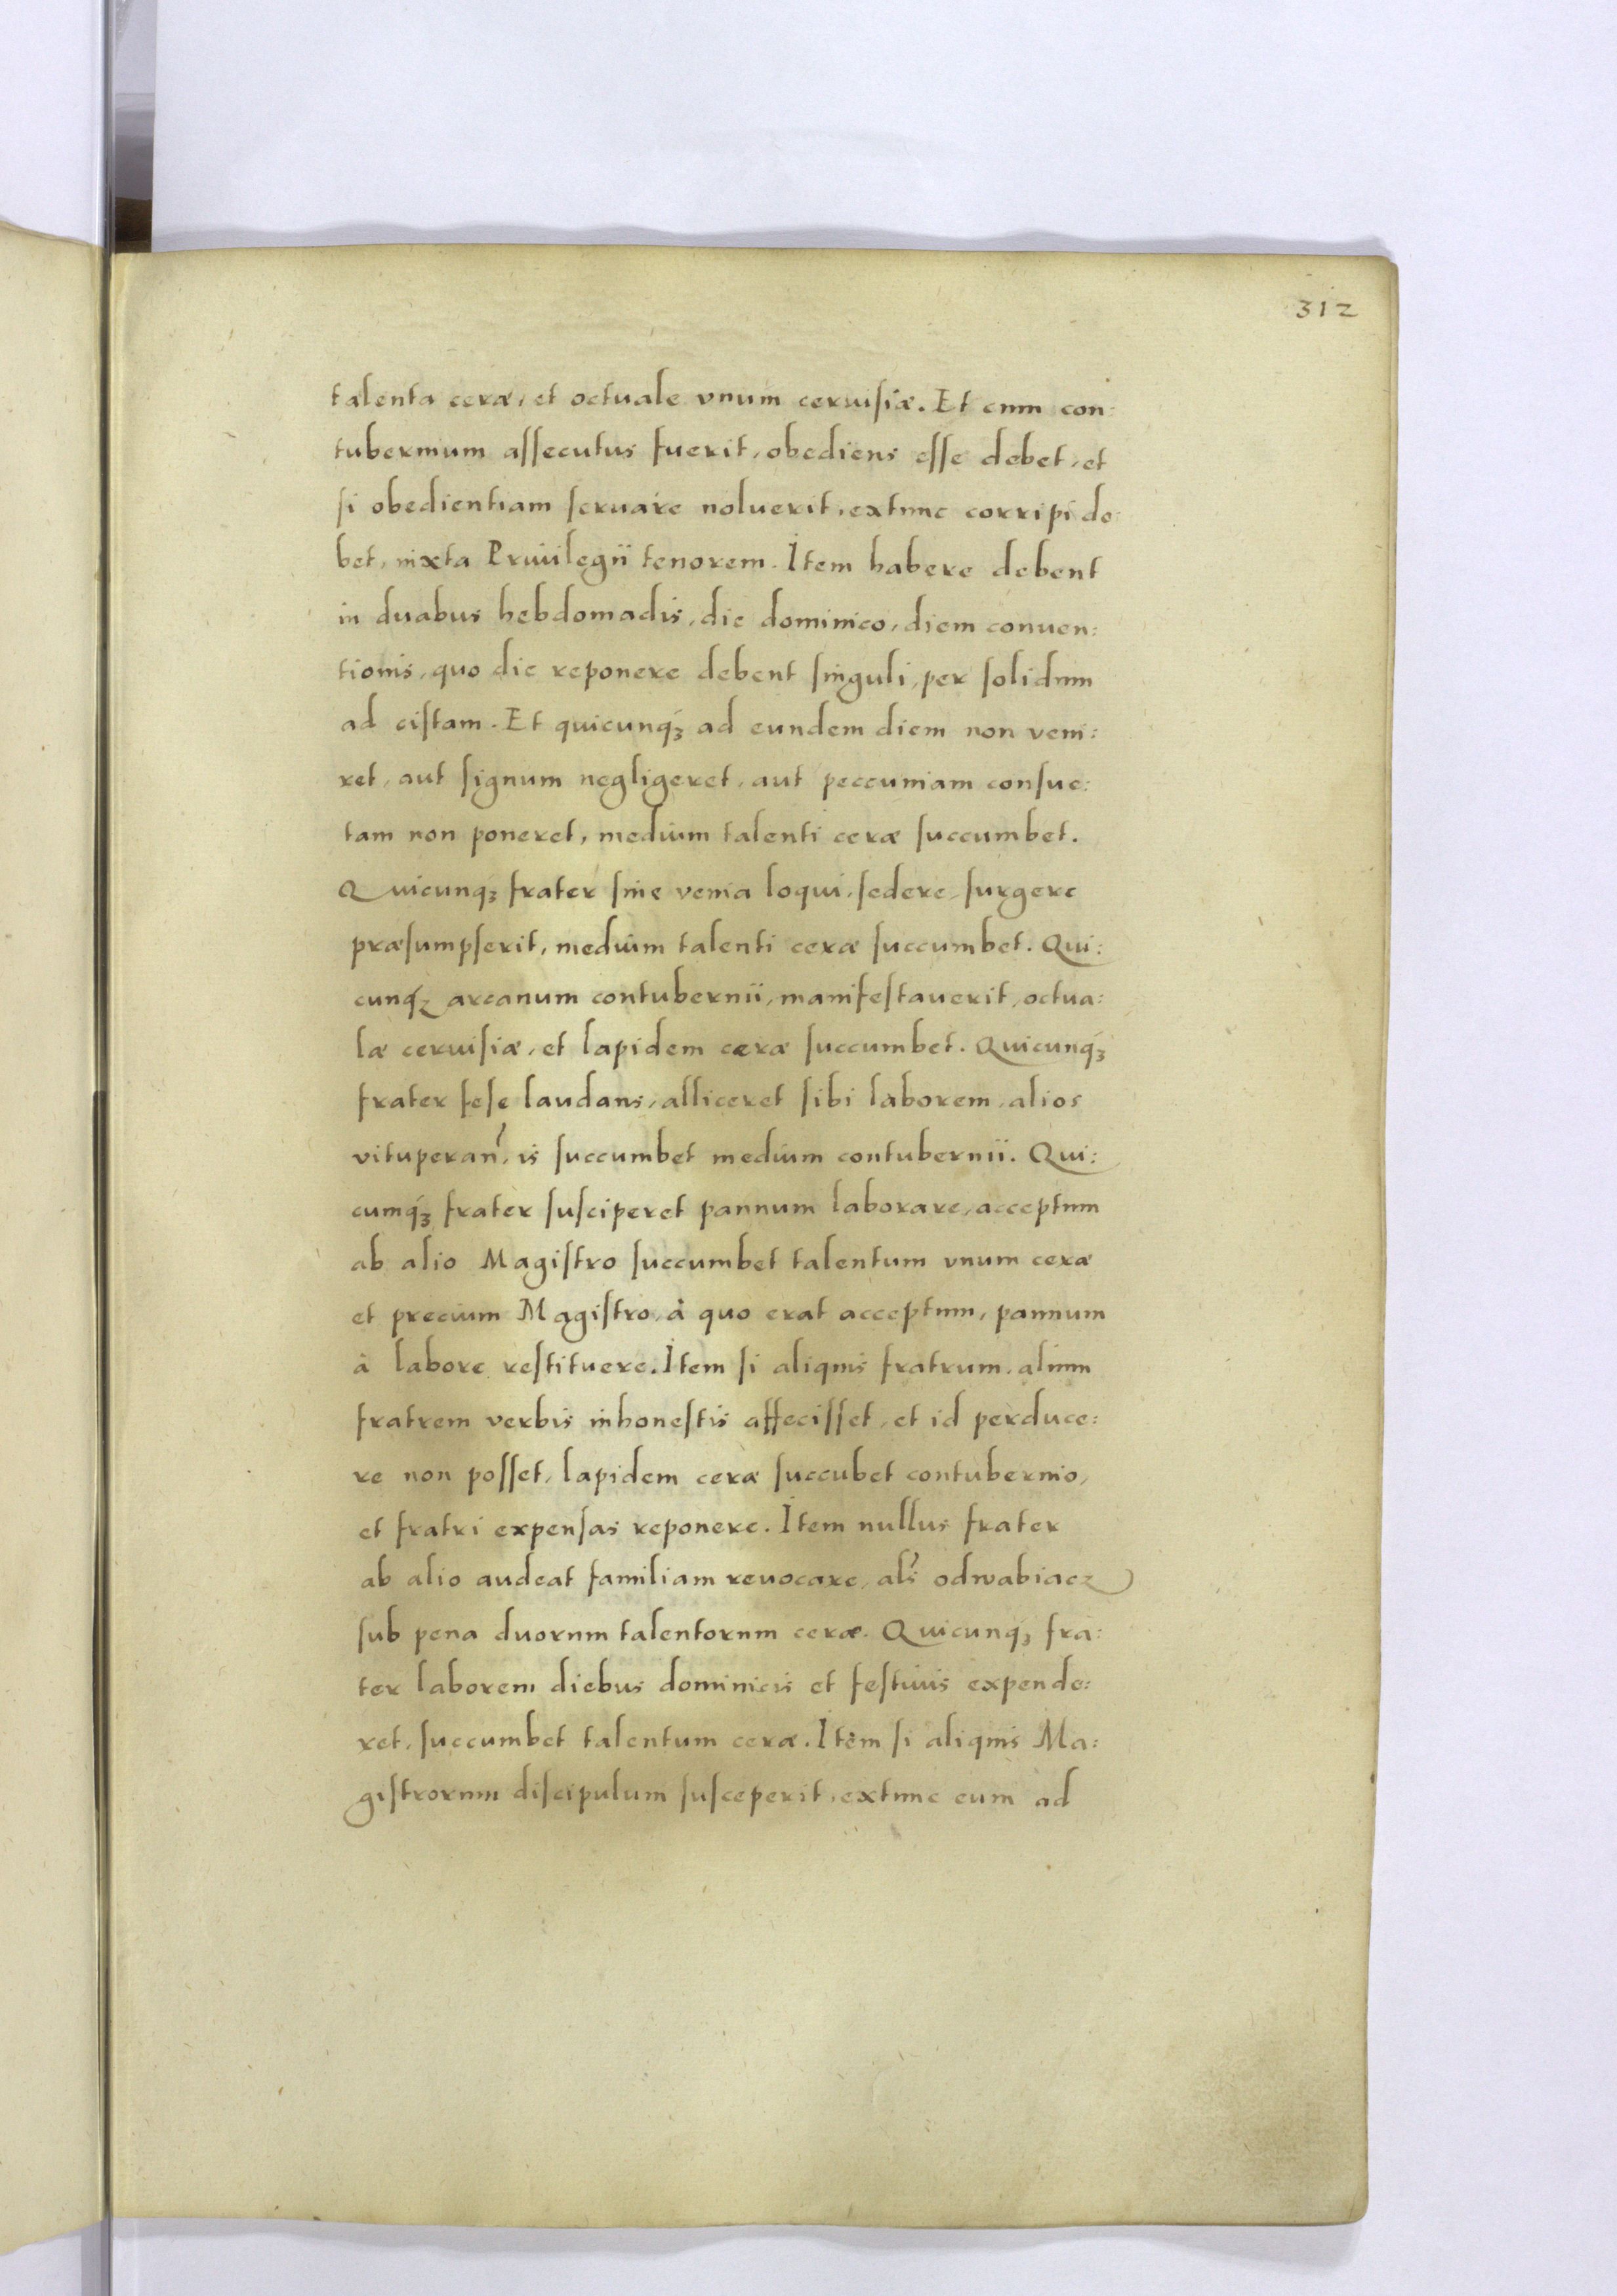 312
talenta ceræ, et octuale vnum ceruisiæ. Et cum con:
tubernium assecutus fuerit, obediens esse debet, et
si obedientiam seruare noluerit, extunc corripi de:
bet, iuxta Priuilegii tenorem. Item habere debent
in duabus hebdomadis, die dominico, diem conuen:
tionis, quo die reponere debent singuli, per solidum
ad cistam. Et quicunq́ꝫ ad eundem diem non veni:
ret, aut signum negligeret, aut peccuniam consue:
tam non poneret, medium talenti ceræ succumbet.
Quicunq́ꝫ frater sine venia loqui, sedere, surgere
præsumpserit, medium talenti ceræ succumbet. Qui:
cunq́ꝫ arcanum contubernii, manifestauerit, octua:
læ ceruisiæ, et lapidem ceræ succumbet. Quicunq́ꝫ
frater sese laudans, alliceret sibi laborem, alios
vituperan̉, is succumbet medium contubernii. Qui:
cumq́ꝫ frater susciperet pannum laborare, acceptum
ab alio Magistro succumbet talentum vnum ceræ
et precium Magistro, à quo erat acceptum, pannum
à labore restituere. Item si aliquis fratrum, alium
fratrem verbis inhonestis affecisset, et id perduce:
re non posset, lapidem ceræ succubet contubernio,
et fratri expensas reponere. Item nullus frater
ab alio audeat familiam reuocare, als̉ odwabiacz
sub pena duorum talentorum ceræ. Quicunq́ꝫ fra:
ter laborem diebus dominicis et festiuis expende:
ret, succumbet talentum ceræ. Item si aliquis Ma:
gistrorum discipulum susceperit, extunc eum ad